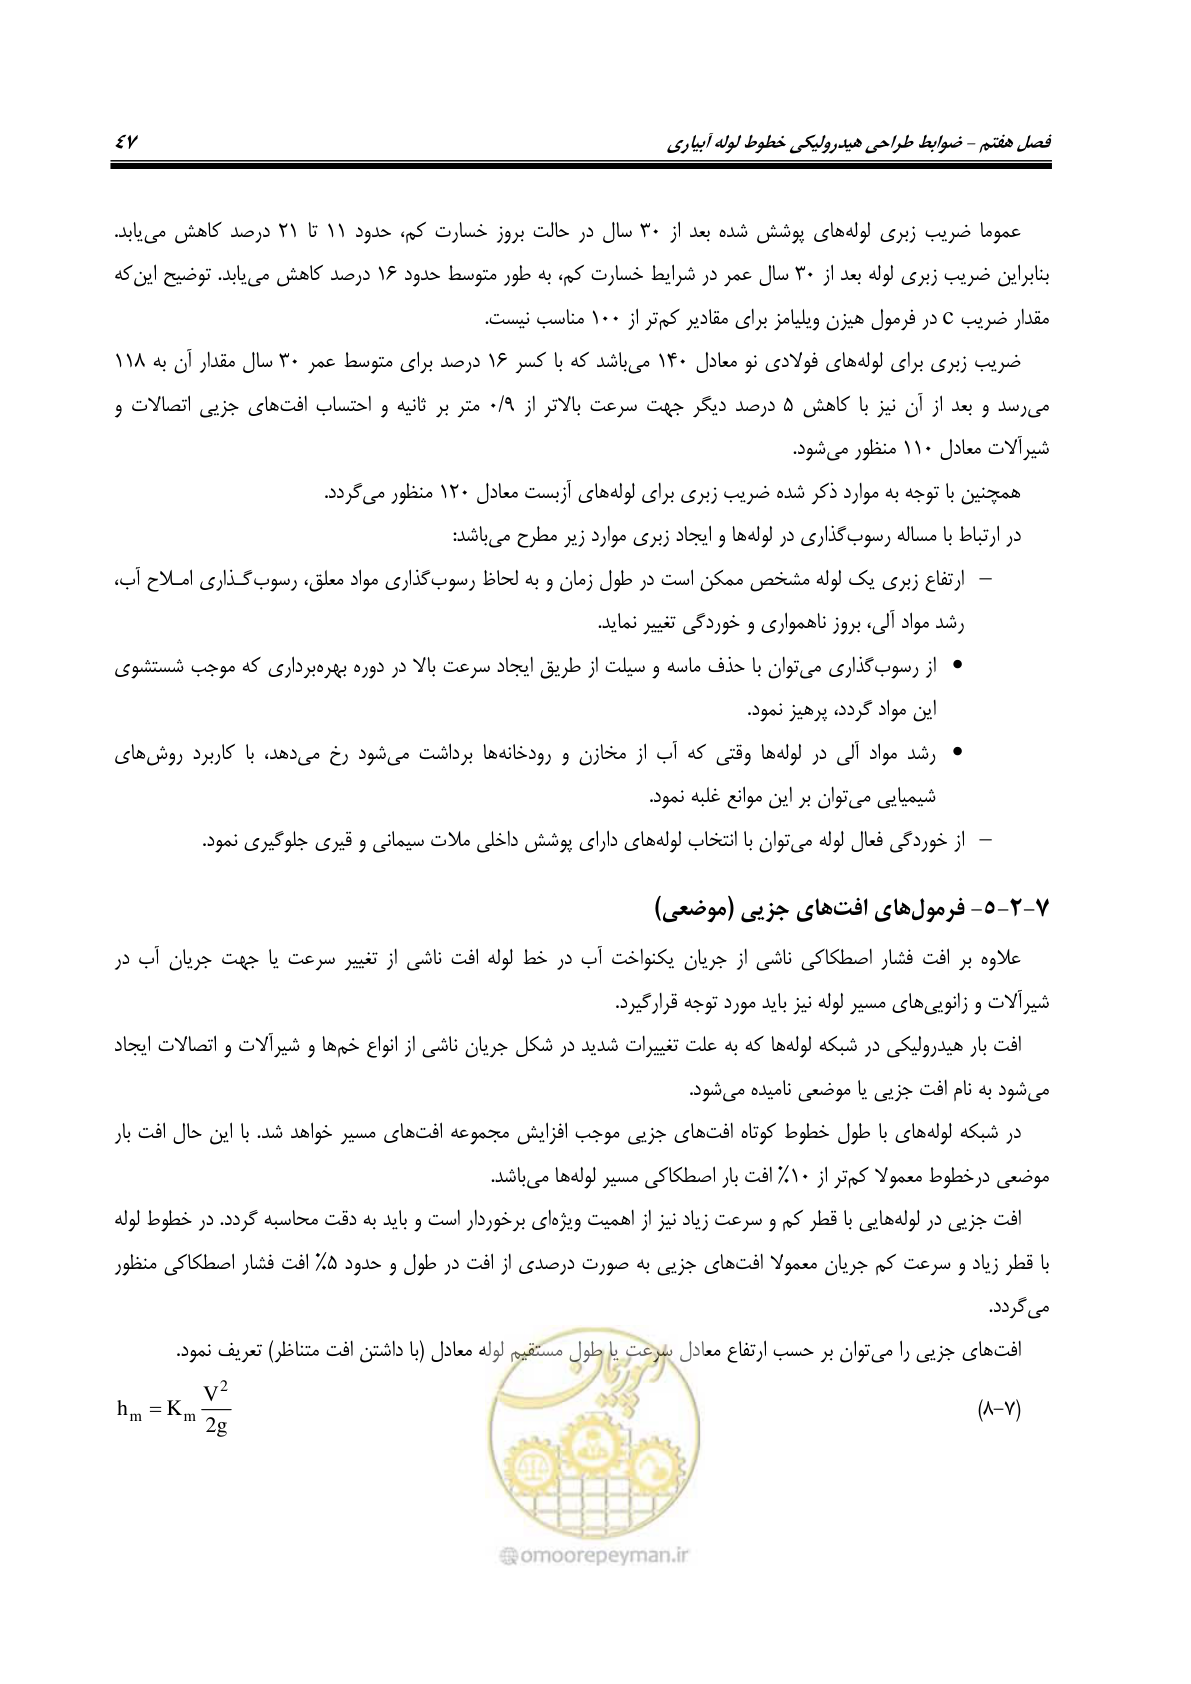 فصل هفتم – ضوابط طراحی هیدرولیکی خطوط لوله آبیاری ٤٧
عموما ضریب زبری لوله‌های پوشش شده بعد از ۳۰ سال در حالت بروز خسارت کم، حدود ۱۱ تا ۲۱ درصد کاهش می‌یابد.
بنابراین ضریب زبری لوله بعد از ۳۰ سال عمر در شرایط خسارت کم، به طور متوسط حدود ۱۶ درصد کاهش می‌یابد. توضیح این‌که
مقدار ضریب c در فرمول هیزن ویلیامز برای مقادیر کم‌تر از ۱۰۰ مناسب نیست.
ضریب زبری برای لوله‌های فولادی نو معادل ۱۴۰ می‌باشد که با کسر ۱۶ درصد برای متوسط عمر ۳۰ سال مقدار آن به ۱۱۸
می‌رسد و بعد از آن نیز با کاهش ۵ درصد دیگر جهت سرعت بالاتر از ۰/۹ متر بر ثانیه و احتساب افت‌های جزیی اتصالات و
شیرآلات معادل ۱۱۰ منظور می‌شود.
همچنین با توجه به موارد ذکر شده ضریب زبری برای لوله‌های آزبست معادل ۱۲۰ منظور می‌گردد.
در ارتباط با مساله رسوب‌گذاری در لوله‌ها و ایجاد زبری موارد زیر مطرح می‌باشد:
– ارتفاع زبری یک لوله مشخص ممکن است در طول زمان و به لحاظ رسوب‌گذاری مواد معلق، رسوب‌گـذاری امـلاح آب،
رشد مواد آلی، بروز ناهمواری و خوردگی تغییر نماید.
• از رسوب‌گذاری می‌توان با حذف ماسه و سیلت از طریق ایجاد سرعت بالا در دوره بهره‌برداری که موجب شستشوی
این مواد گردد، پرهیز نمود.
• رشد مواد آلی در لوله‌ها وقتی که آب از مخازن و رودخانه‌ها برداشت می‌شود رخ می‌دهد، با کاربرد روش‌های
شیمیایی می‌توان بر این موانع غلبه نمود.
– از خوردگی فعال لوله می‌توان با انتخاب لوله‌های دارای پوشش داخلی ملات سیمانی و قیری جلوگیری نمود.
۷-۲-۵- فرمول‌های افت‌های جزیی (موضعی)
علاوه بر افت فشار اصطکاکی ناشی از جریان یکنواخت آب در خط لوله افت ناشی از تغییر سرعت یا جهت جریان آب در
شیرآلات و زانویی‌های مسیر لوله نیز باید مورد توجه قرارگیرد.
افت بار هیدرولیکی در شبکه لوله‌ها که به علت تغییرات شدید در شکل جریان ناشی از انواع خم‌ها و شیرآلات و اتصالات ایجاد
می‌شود به نام افت جزیی یا موضعی نامیده می‌شود.
در شبکه لوله‌های با طول خطوط کوتاه افت‌های جزیی موجب افزایش مجموعه افت‌های مسیر خواهد شد. با این حال افت بار
موضعی درخطوط معمولا کم‌تر از ۱۰٪ افت بار اصطکاکی مسیر لوله‌ها می‌باشد.
افت جزیی در لوله‌هایی با قطر کم و سرعت زیاد نیز از اهمیت ویژه‌ای برخوردار است و باید به دقت محاسبه گردد. در خطوط لوله
با قطر زیاد و سرعت کم جریان معمولا افت‌های جزیی به صورت درصدی از افت در طول و حدود ۵٪ افت فشار اصطکاکی منظور
می‌گردد.
افت‌های جزیی را می‌توان بر حسب ارتفاع معادل سرعت یا طول مستقیم لوله معادل (با داشتن افت متناظر) تعریف نمود.
(۷-۸) h_m = K_m V²/2g
امور پیمان
@omoorepeyman.ir